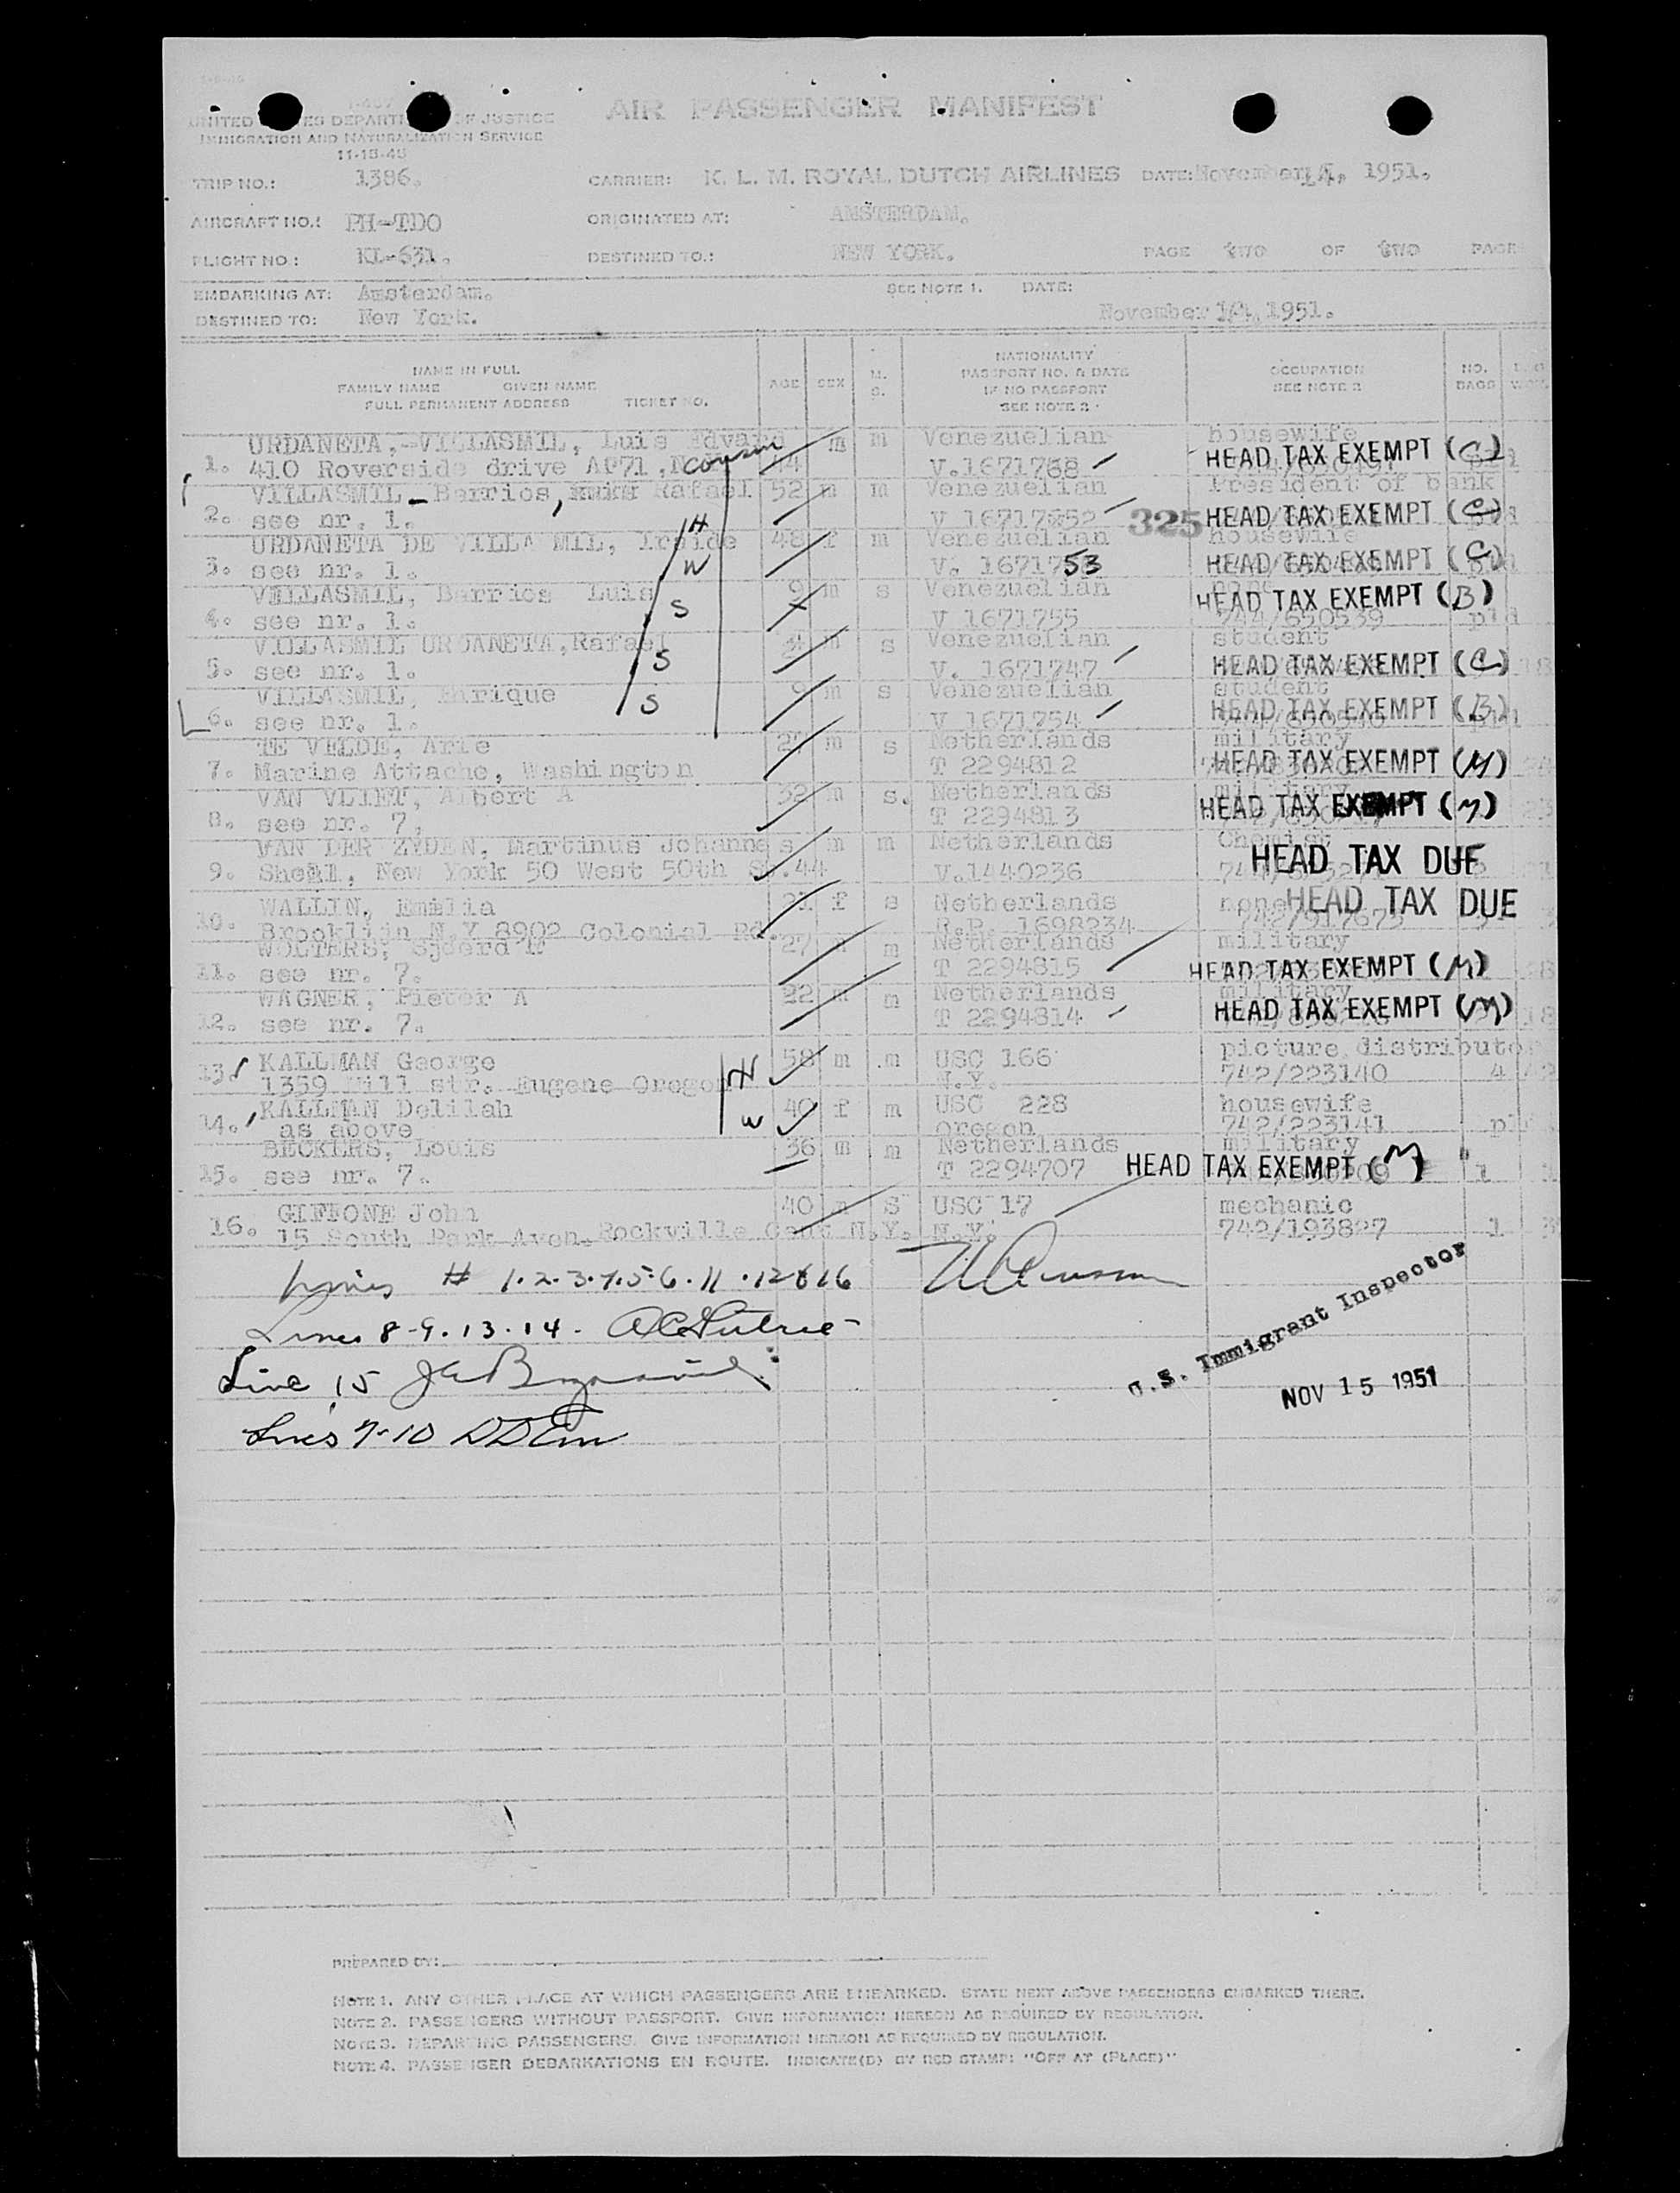 UNITED DEPARTM OF JUSTICE
IMMIGRATION AND NATURALIZATION SERVICE
11-18-48
AIR PASSENGER MANIFEST
TRIP NO.: 1386. CARRIER: K. L. M. ROYAL DUTCH AIRLINES DATE: November 14, 1951.
AIRCRAFT NO.: PH-TDO ORIGINATED AT: AMSTERDAM.
FLIGHT NO.: KL-631. DESTINED TO.: NEW YORK. PAGE two OF two PAGE
EMBARKING AT: Amsterdam. SEE NOTE 1. DATE:
DESTINED TO: New York. November 14, 1951.
NAME IN FULL
FAMILY NAME GIVEN NAME
FULL PERMANENT ADDRESS TICKET NO.
AGE SEX M. S.
NATIONALITY
PASSPORT NO. & DATE
IF NO PASSPORT
SEE NOTE 2
OCCUPATION
SEE NOTE 2
NO. BAGS
URDANETA,-VILLASMIL, Luis Edvard m m Venezuelian housewife
1. 410 Roverside drive AP71, cousin 44 V.1671768 HEAD TAX EXEMPT (C)
VILLASMIL - Barrios, Rafael 52 m m Venezuelian President of bank
2. see nr. 1. V 16717652 325 HEAD TAX EXEMPT (C)
URDANETA DE VILLA MIL, Iraide H 48 f m Venezuelian housewife
3. see nr. 1. W V. 1671753 HEAD TAX EXEMPT (C)
VILLASMIL, Barrios Luis 9 m s Venezuelian none
4. see nr. 1. S V 1671755 HEAD TAX EXEMPT (B) 744/650539 pld
VILLASMIL URDANETA, Rafael m s Venezuelian student
5. see nr. 1. S V. 1671747 HEAD TAX EXEMPT (C) 18
VILLASMIL, Enrique 9 m s Venezuelian student
6. see nr. 1. S V 1671754 HEAD TAX EXEMPT (B)
TE VELDE, Arie 27 m s Netherlands military
7. Marine Attache, Washington T 2294812 HEAD TAX EXEMPT (M)
VAN VLIET, Albert A 32 m s. Netherlands military
8. see nr. 7, T 2294813 HEAD TAX EXEMPT (M)
VAN DER ZYDEN, Martinus Johannes m m Netherlands Chemist
9. Shell, New York 50 West 50th St.44 V.1440236 HEAD TAX DUE
WALLIN, Emilia 21 f s Netherlands none HEAD TAX DUE
10. Brooklijn N.Y 8902 Colonial Rd. R.P. 1698234 742/917673
WOLTERS, Sjoerd H 27 m Netherlands military
11. see nr. 7. T 2294815 HEAD TAX EXEMPT (M)
WAGNER, Pieter A 22 m m Netherlands military
12. see nr. 7. T 2294814 HEAD TAX EXEMPT (M) 18
13. KALLMAN George H 58 m m USC 166 picture distributo
1359 Mill str. Eugene Oregon N.Y. 742/223140 4
14. KALLMAN Delilah 40 f m USC 228 housewife
as above W Oregon 742/223141 pl
BECKERS, Louis 36 m m Netherlands military
15. see nr. 7. T 2294707 HEAD TAX EXEMPT (M) 1
GIFFONE John 40 m S USC 17 mechanic
16. 15 South Park Aven. Rockville Cent N.Y. N.Y. 742/193827 1
# 1.2.3.4.5.6.11.12&16
Lines 8-9.13.14.
Line 15
Lines 7-10
U.S. Immigrant Inspector
NOV 15 1951
PREPARED BY:
NOTE 1. ANY OTHER PLACE AT WHICH PASSENGERS ARE EMBARKED. STATE NEXT ABOVE PASSENGERS EMBARKED THERE.
NOTE 2. PASSENGERS WITHOUT PASSPORT. GIVE INFORMATION HEREON AS REQUIRED BY REGULATION.
NOTE 3. DEPARTING PASSENGERS. GIVE INFORMATION HEREON AS REQUIRED BY REGULATION.
NOTE 4. PASSENGER DEBARKATIONS EN ROUTE. INDICATE(D) BY RED STAMP: "OFF AT (PLACE)"